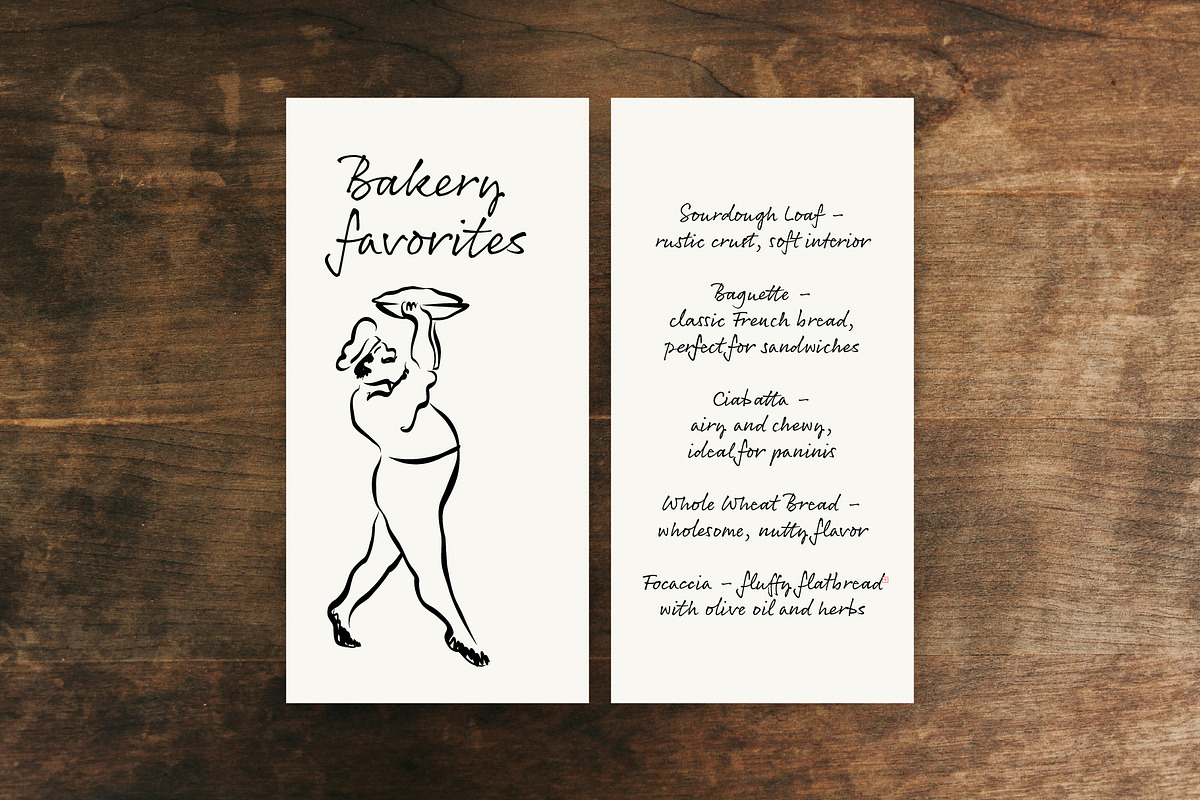 Bakery
favorites
Sourdough Loaf –
rustic crust, soft interior
Baguette –
classic French bread,
perfect for sandwiches
Ciabatta –
airy and chewy,
ideal for paninis
Whole Wheat Bread –
wholesome, nutty flavor
Focaccia – fluffy flatbread
with olive oil and herbs